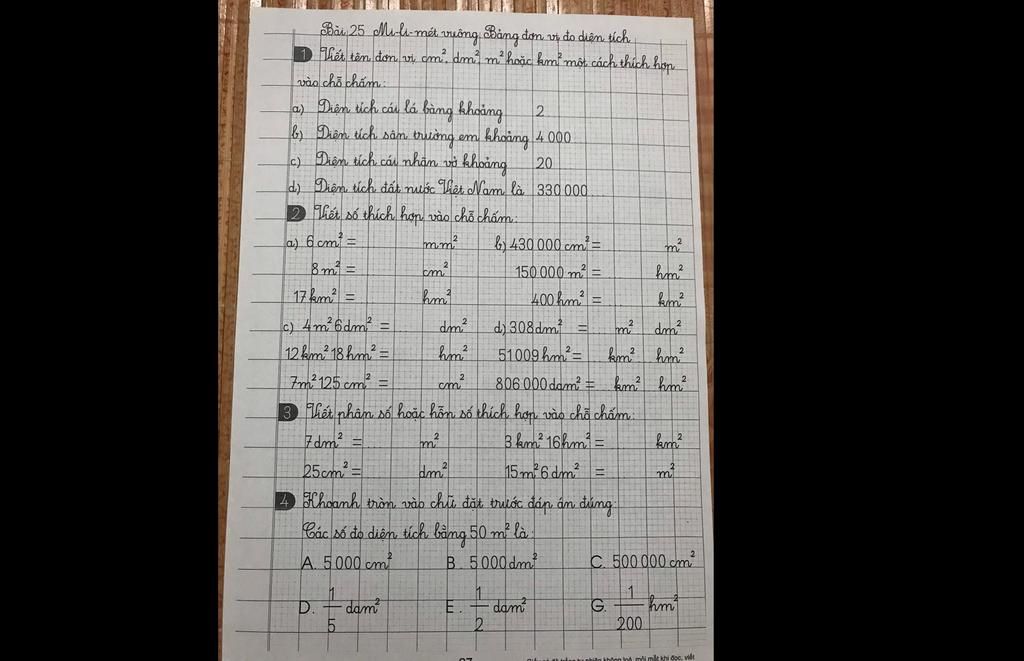 Bài 25 Mi-li-mét vuông. Bảng đơn vị đo diện tích
1 Viết tên đơn vị cm², dm², m² hoặc km² một cách thích hợp
vào chỗ chấm:
a) Diện tích cái lá bàng khoảng 2
b) Diện tích sân trường em khoảng 4 000
c) Diện tích cái nhãn vở khoảng 20
d) Diện tích đất nước Việt Nam là 330 000
2 Viết số thích hợp vào chỗ chấm:
a) 6 cm² = mm² b) 430 000 cm² = m²
8 m² = cm² 150 000 m² = hm²
17 km² = hm² 400 hm² = km²
c) 4 m² 6 dm² = dm² d) 308 dm² = m² dm²
12 km² 18 hm² = hm² 51 009 hm² = km² hm²
7 m² 125 cm² = cm² 806 000 dam² = km² hm²
3 Viết phân số hoặc hỗn số thích hợp vào chỗ chấm:
7 dm² = m² 3 km² 16 hm² = km²
25 cm² = dm² 15 m² 6 dm² = m²
4 Khoanh tròn vào chữ đặt trước đáp án đúng:
Các số đo diện tích bằng 50 m² là:
A. 5 000 cm² B. 5 000 dm² C. 500 000 cm²
D. 1/5 dam² E. 1/2 dam² G. 1/200 hm²